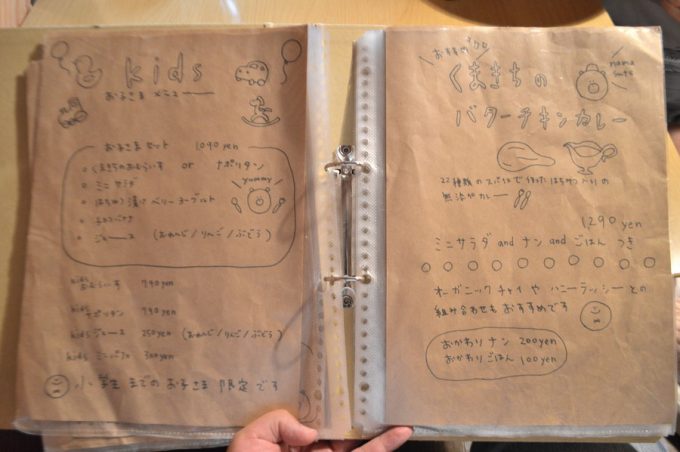 kids
お子さま メニュー
お子さま セット 1090yen
くまきちのおむらいす or ナポリタン
ミニ サラダ
はちみつ漬け ベリーヨーグルト
ジュース (おれんじ/りんご/ぶどう)
yummy
kids おむらいす 790yen
kids ナポリタン 790yen
kids ジュース 250yen (おれんじ/りんご/ぶどう)
kids ミニパフェ 300yen
小学生までのお子さま限定です
おすすめ
くまきちの
バターチキンカレー
22種類のスパイスで作った はちみつ入りの
無添加カレー
1290yen
ミニサラダ and ナン and ごはん つき
オーガニックチャイ や ハニーラッシー との
組み合わせも おすすめです
おかわり ナン 200yen
おかわり ごはん 100yen